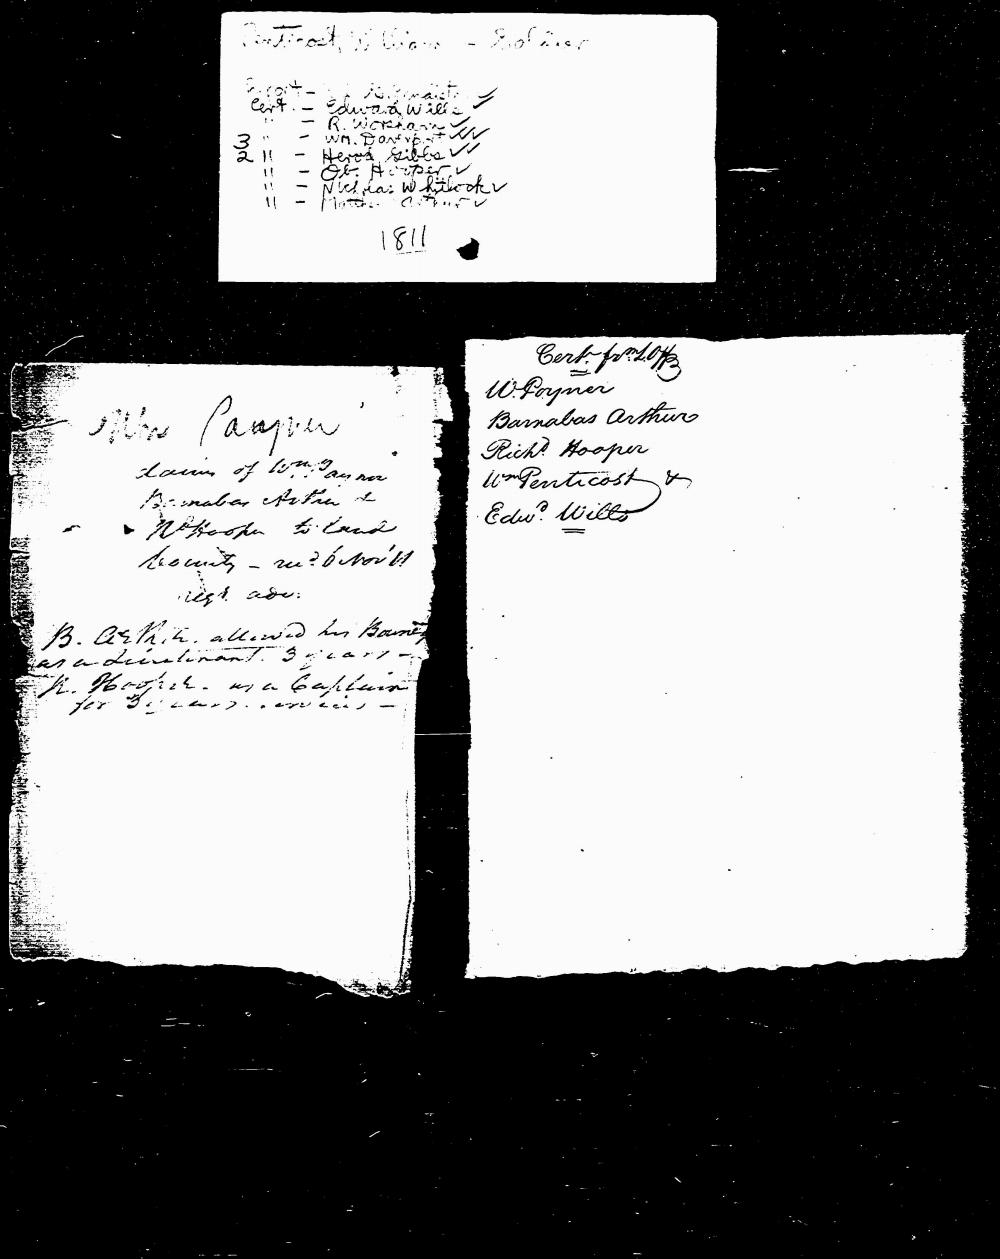 Penticost, William - Soldier
Cert. - Edward Wills ✓
" - R. Worsham ✓
3 " - Wm. Davenport ✓✓✓
2 " - Herod Gibbs ✓✓
" - Ob. Hooper ✓
" - Nicholas Whitlock ✓
" - Matthew Arthur ✓
1811
claims of Wm. Paynor
Barnabas Arthur &
Rd Hooper to Land
bounty - recd 6 Nov '11
B. Arthur allowed his Bounty
as a Lieutenant. 3 years -
R. Hooper. as a Captain
for 3 years.
Cert. from L. Off
W. Poyner
Barnabas Arthur
Richd. Hooper
Wm Penticost &
Edwd. Wills